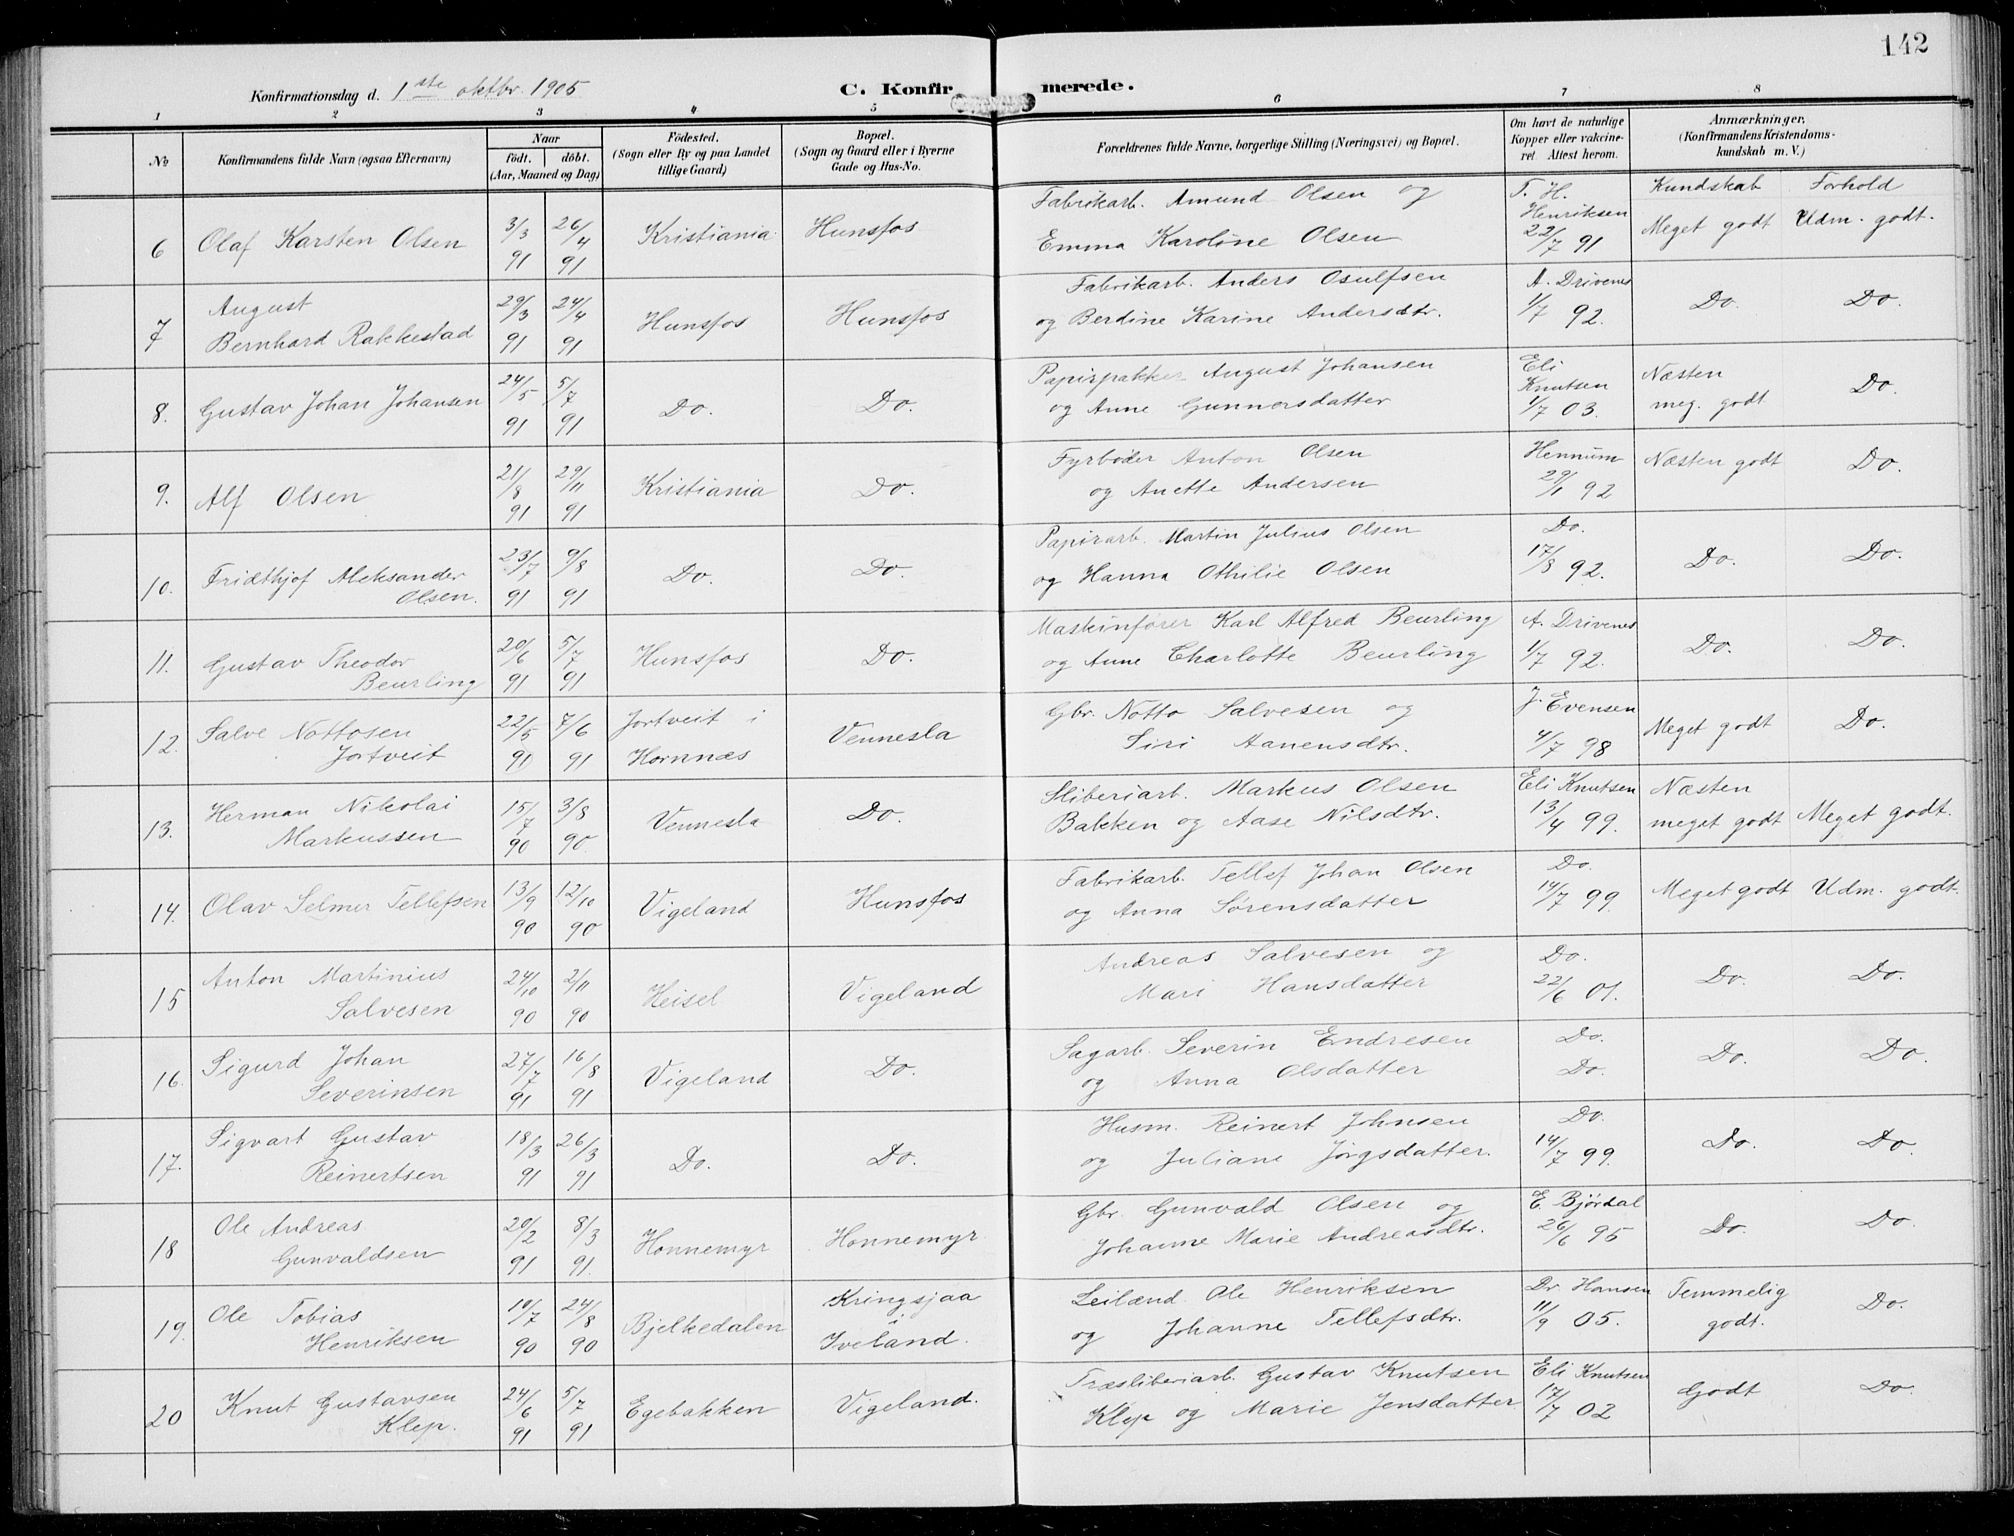 142
Konfirmationsdag d. 1ste oktbr. 1905 C. Konfirmerede.
1 2 3 4 5 6 7 8
No
Konfirmandens fulde Navn (ogsaa Efternavn)
Naar
födt. döbt.
(Aar, Maaned og Dag)
Födested.
(Sogn eller By og paa Landet
tillige Gaard)
Bopæl.
(Sogn og Gaard eller i Byerne
Gade og Hus-No.
Forældrenes fulde Navne, borgerlige Stilling (Næringsvei) og Bopæl.
Om havt de naturlige
Kopper eller vakcine-
ret. Attest herom.
Anmærkninger.
(Konfirmandens Kristendoms-
kundskab m. V.)
Kundskab Forhold
6 Olaf Karsten Olsen 3/3 91 26/4 91 Kristiania Hunsfos
Fabrikarb. Amund Olsen og
Emma Karoline Olsen
T. H.
Henriksen
22/7 91
Meget godt Udm. godt.
7 August
Bernhard Rakkestad 29/3 91 24/4 91 Hunsfos Hunsfos
Fabrikarb. Anders Osulfsen
og Berdine Karine Andersdtr.
A. Drivenes
1/7 92.
Do. Do.
8. Gustav Johan Johansen 24/5 91 5/7 91 Do. Do.
Papirpakker August Johansen
og Anne Gunnersdatter
Eli
Knutsen
1/7 03.
Næsten
meg. godt Do.
9. Alf Olsen 21/8 91 29/11 91 Kristiania Do.
Fyrböder Anton Olsen
og Anette Andersen
Hennum
29/1 92
Næsten godt Do.
10. Fridthjof Aleksander
Olsen. 23/7 91 9/8 91 Do. Do.
Papirarb. Martin Julius Olsen
og Hanna Othilie Olsen
Do.
17/8 92.
Do. Do.
11. Gustav Theodor
Beurling 20/6 91 5/7 91 Hunsfos Do.
Maskinfører Karl Alfred Beurling
og Anne Charlotte Beurling
A. Drivenes
1/7 92.
Do. Do.
12. Salve Nottosen
Jortveit 22/5 90 7/6 91 Jortveit i
Hornnæs Vennesla
Gbr. Notto Salvesen og
Siri Aanensdtr.
J. Evensen
4/7 98
Meget godt Do.
13. Herman Nikolai
Markussen 15/7 90 3/8 90. Vennesla Do.
Sliberiarb. Markus Olsen
Bakken og Aase Nilsdtr.
Eli Knutsen
13/4 99.
Næsten
meget godt Meget godt.
14. Olav Selmer Tellefsen 13/9 90 12/10 90 Vigeland Hunsfos
Fabrikarb. Tellef Johan Olsen
og Anna Sørensdatter
Do.
14/7 99.
Meget godt Udm. godt.
15 Anton Martinius
Salvesen 24/10 90 2/11 90 Heisel Vigeland
Andreas Salvesen og
Mari Hansdatter
Do.
22/6 01.
Do. Do.
16. Sigurd Johan
Severinsen 27/7 91 16/8 91 Vigeland Do.
Sagarb. Severin Endresen
og Anna Olsdatter
Do.
Do.
Do. Do.
17. Sigvart Gustav
Reinertsen 18/3 91 26/3 91 Do. Do.
Husm. Reinert Johnsen
og Juliane Jørgsdatter.
Do.
14/7 99.
Do. Do.
18 Ole Andreas
Gunvaldsen 20/2 91 8/3 91. Honnemyr Honnemyr.
Gbr. Gunvald Olsen og
Johanne Marie Andreasdtr.
E. Bjørdal
26/6 95
Do. Do.
19. Ole Tobias
Henriksen 10/7 90 24/8 90 Bjelkedalen Kringsjaa
i
Iveland.
Leilænd. Ole Henriksen
og Johanne Tellefsdtr.
Dr Hansen
11/9 05.
Temmelig
godt. Do.
20 Knut Gustavsen
Klep. 24/6 91 5/7 91 Egebakken Vigeland.
Træsliberiarb. Gustav Knutsen
Klep og Marie Jensdatter
Eli Knutsen
17/7 02
Godt Do.